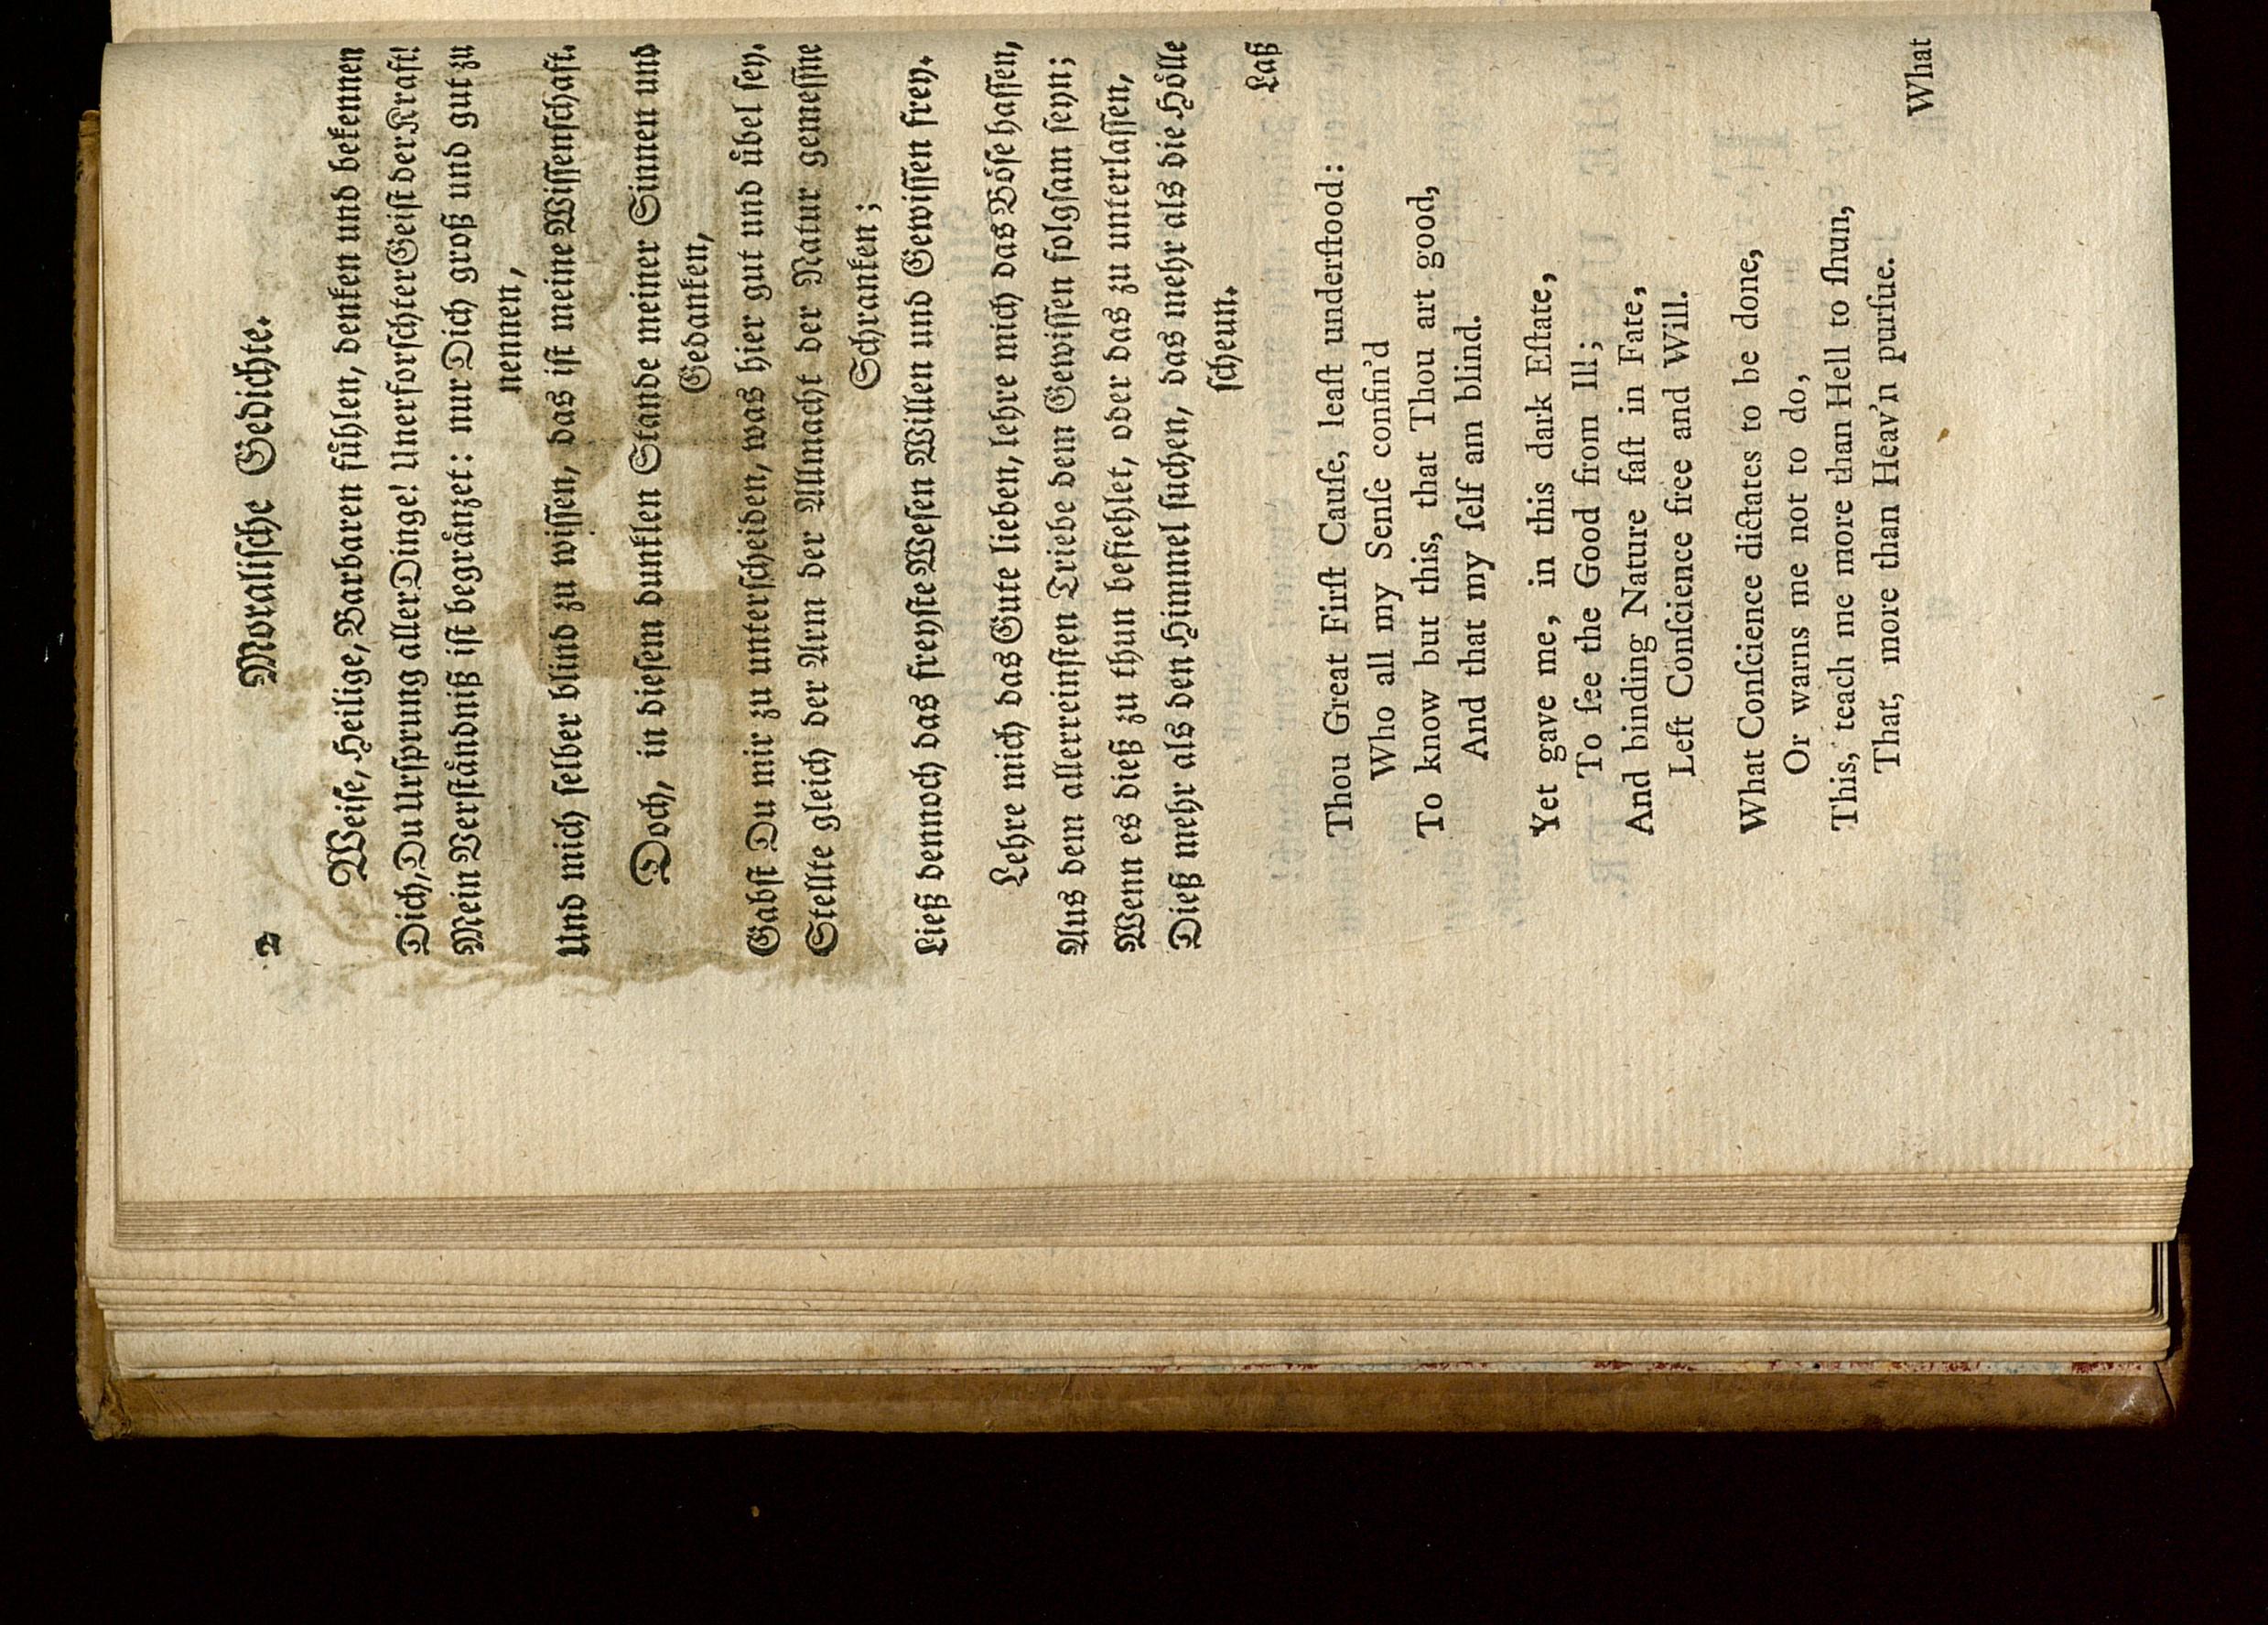 2 Moraliſche Gedichte.
Weiſe, Heilige, Barbaren fuͤhlen, denken und bekennen
Dich, Du Urſprung aller Dinge! Unerforſchter Geiſt der Kraft!
Mein Verſtaͤndniß iſt begraͤnzet: nur Dich groß und gut zu
nennen,
Und mich ſelber blind zu wiſſen, das iſt meine Wiſſenſchaft.
Doch, in dieſem dunklen Stande meiner Sinnen und
Gedanken,
Gabſt Du mir zu unterſcheiden, was hier gut und uͤbel ſey.
Stellte gleich der Arm der Allmacht der Natur gemeſſne
Schranken;
Ließ dennoch das freyſte Weſen Willen und Gewiſſen frey.
Lehre mich das Gute lieben, lehre mich das Boͤſe haſſen,
Aus dem allerreinſten Triebe dem Gewiſſen folgſam ſeyn;
Wenn es dieß zu thun befiehlet, oder das zu unterlaſſen,
Dieß mehr als den Himmel ſuchen, das mehr als die Hoͤlle
ſcheun.
Laß
Thou Great Firſt Cauſe, leaſt underſtood:
Who all my Senſe confin'd
To know but this, that Thou art good,
And that my ſelf am blind.
Yet gave me, in this dark Eſtate,
To ſee the Good from Ill;
And binding Nature faſt in Fate,
Left Conſcience free and Will.
What Conſcience dictates to be done,
Or warns me not to do,
This, teach me more than Hell to ſhun,
That, more than Heav'n purſue.
What